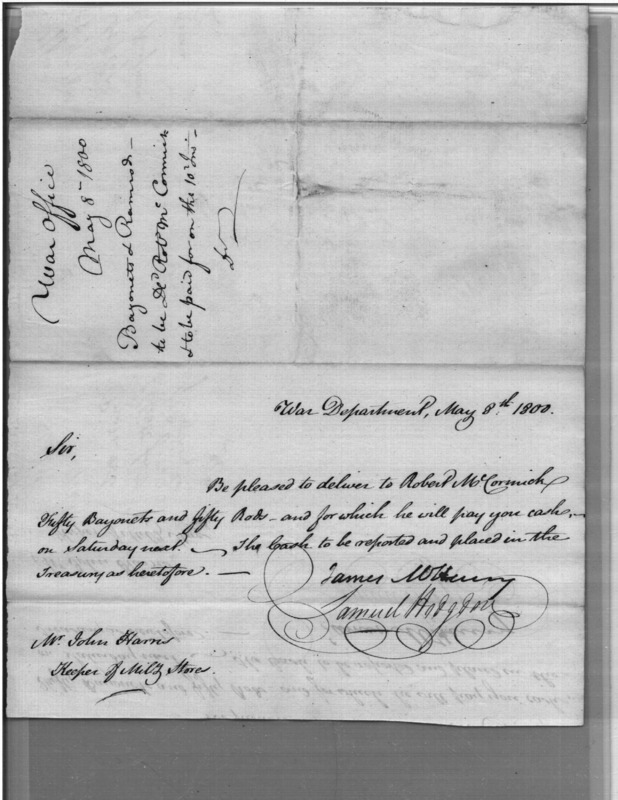 War Office
May 8th 1800
Bayonets & Ramrods –
to be Dd Robt Mc Cormick
& to be paid for on the 10th Ins –
War Department, May 8th 1800.
Sir,
Be pleased to deliver to Robert McCormick
Fifty Bayonets and fifty Rods – and for which he will pay you cash
on Saturday next. – The Cash to be reported and placed in the
Treasury as heretofore. –
James McHenry
Samuel Hodgdon
Mr John Harris
Keeper of Mily Stores.